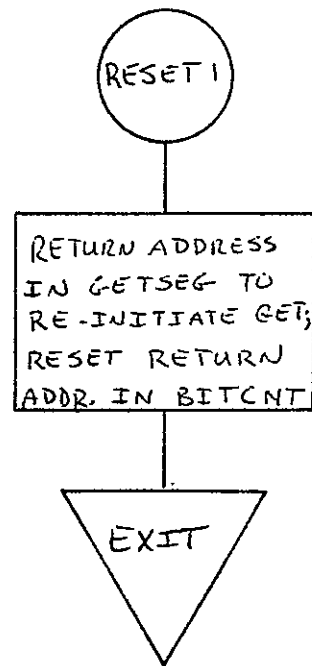 RESET 1
RETURN ADDRESS
IN GETSEG TO
RE-INITIATE GET;
RESET RETURN
ADDR. IN BITCNT
EXIT